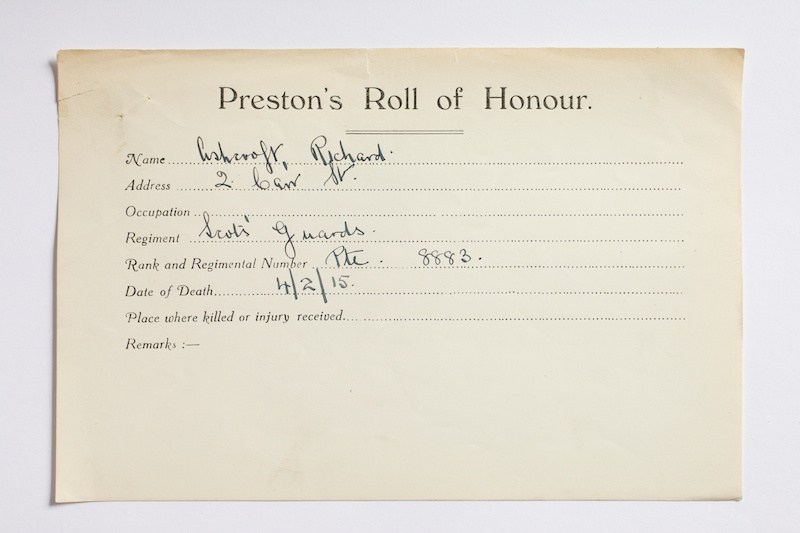 Preston's Roll of Honour.
Name Ashcroft, Richard.
Address 2. Carr St.
Occupation
Regiment Scots' Guards.
Rank and Regimental Number Pte. 8883.
Date of Death 4/2/15.
Place where killed or injury received
Remarks :—